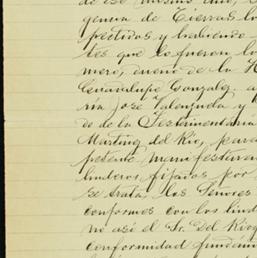 de ese mismo año, 
gencia de Tierras los
pectivas y habiendo
tes que lo fueron los
mero, dueño de la H
Guadalupe Gonzalez, a
ría José Valenzuela y
do de la Testamentaría
Martinez del Río, para
petente manifestaran
linderos fijados por
se trata, los Señores
conformes con los lind
no asé el Sr. Del Río q
conformidad fundán